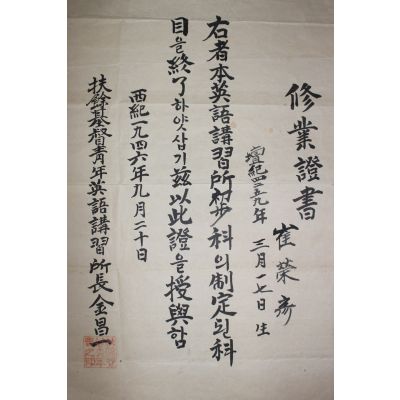 修業證書
崔榮彦
壇紀四二五九年 三月一七日生
右者本英語講習所初步科의制定된科
目을終了하얏삽기玆以此證을授與함
西紀一九四六年九月二十日
扶餘基督靑年英語講習所長 金昌一